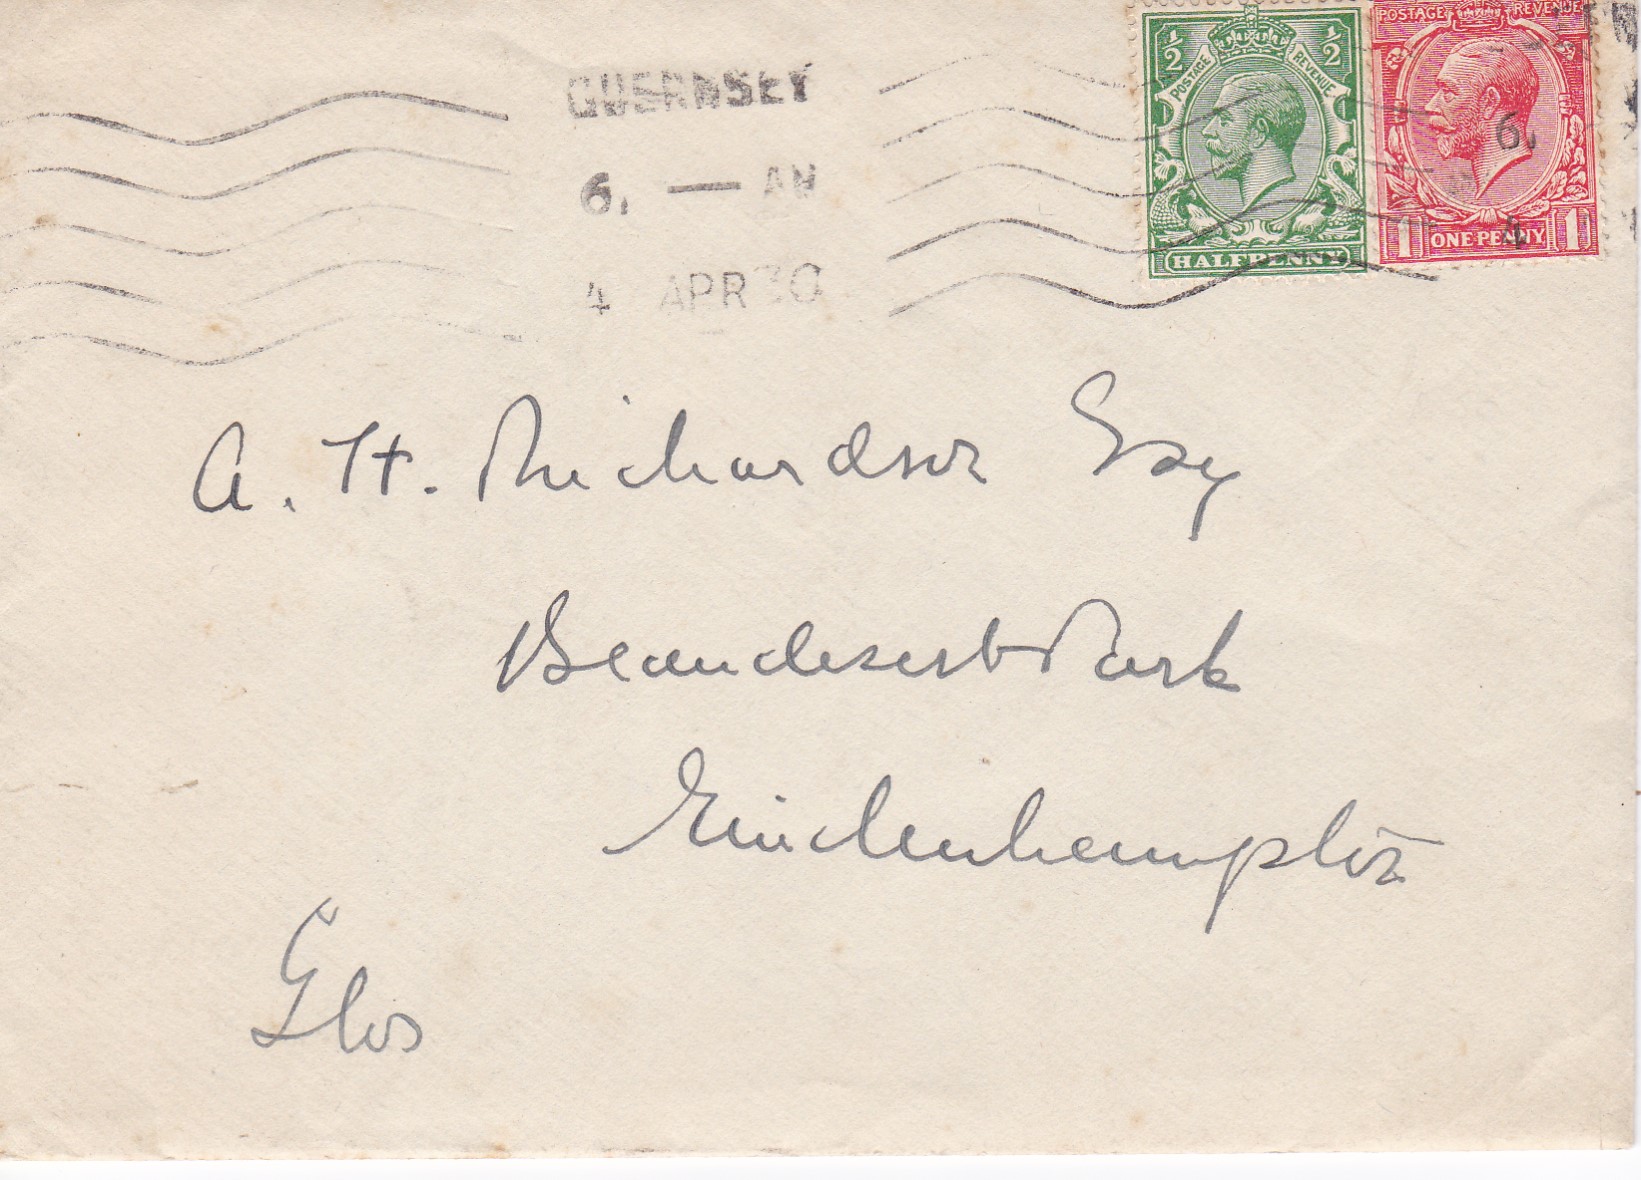 GUERNSEY
6. — AM
4 APR 30
½ ½
POSTAGE REVENUE
HALFPENNY
POSTAGE REVENUE
6.
4
1 ONE PENNY 1
A. H. Richardson Esq
Beaudesert Park
Minchinhampton
Glos